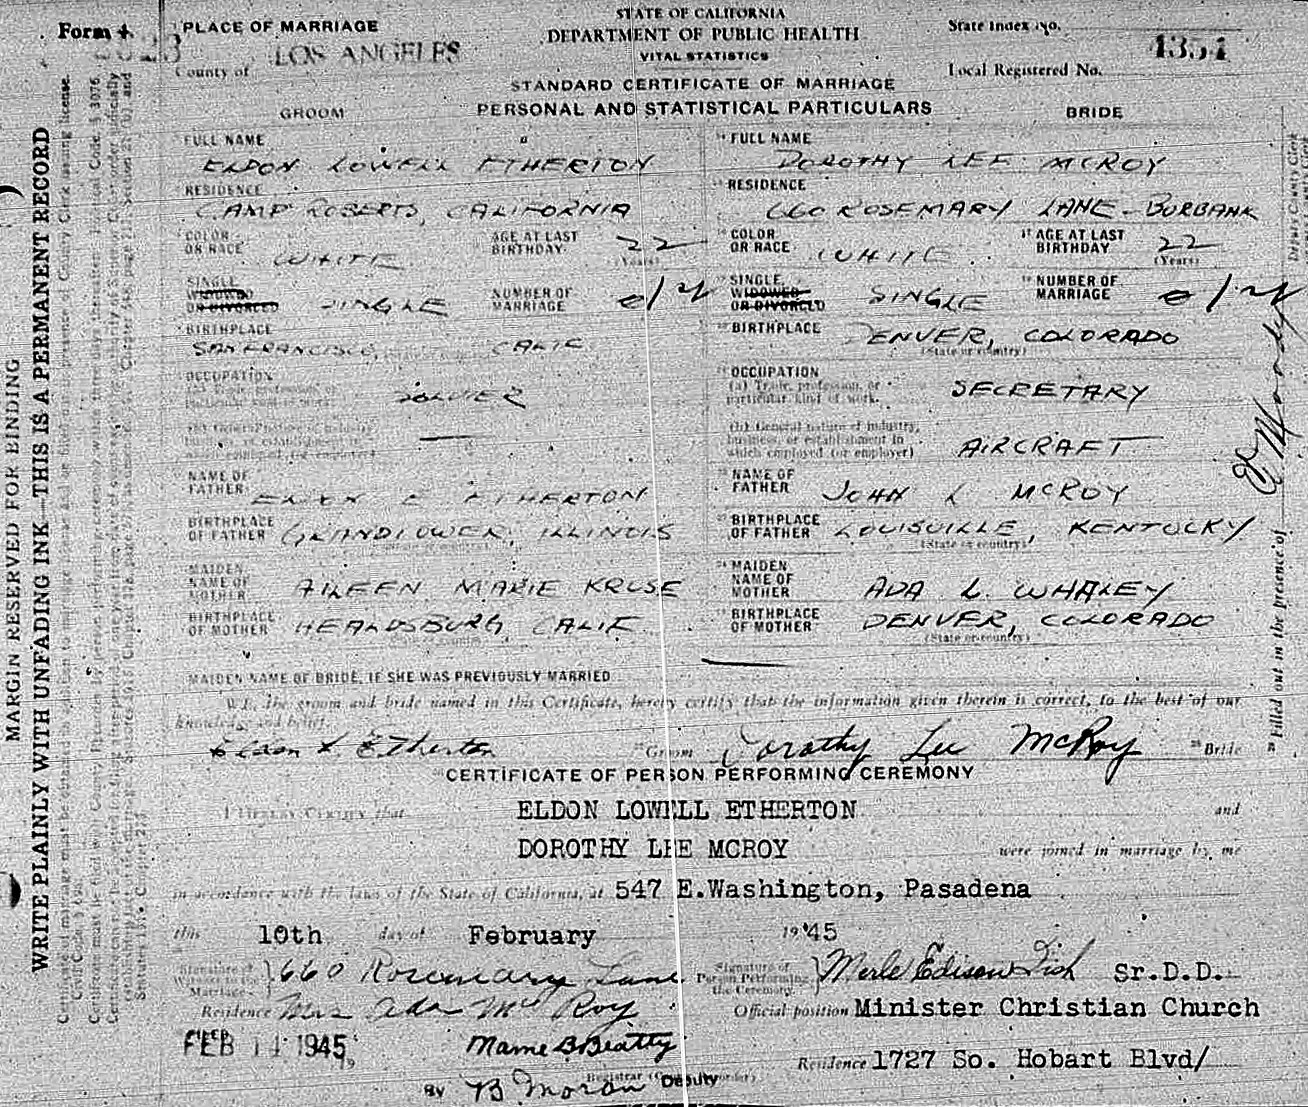 Form
PLACE OF MARRIAGE
County of LOS ANGELES
STATE OF CALIFORNIA
DEPARTMENT OF PUBLIC HEALTH
VITAL STATISTICS
STANDARD CERTIFICATE OF MARRIAGE
State Index No.
Local Registered No. 4354
GROOM PERSONAL AND STATISTICAL PARTICULARS BRIDE
FULL NAME
ELDON LOWELL ETHERTON
RESIDENCE
CAMP ROBERTS, CALIFORNIA
COLOR OR RACE WHITE AGE AT LAST BIRTHDAY 22 (Years)
SINGLE, WIDOWED OR DIVORCED SINGLE NUMBER OF MARRIAGE
BIRTHPLACE
SAN FRANCISCO, CALIF
OCCUPATION
SOLDIER
NAME OF FATHER ELDON E ETHERTON
BIRTHPLACE OF FATHER ILLINOIS
MAIDEN NAME OF MOTHER AILEEN MARIE KRUSE
BIRTHPLACE OF MOTHER HEALDSBURG, CALIF
FULL NAME
DOROTHY LEE MCROY
RESIDENCE
660 ROSEMARY LANE - BURBANK
COLOR OR RACE WHITE AGE AT LAST BIRTHDAY 22 (Years)
SINGLE, WIDOWED OR DIVORCED SINGLE NUMBER OF MARRIAGE
BIRTHPLACE DENVER, COLORADO
(State or country)
OCCUPATION
(a) Trade, profession, or particular kind of work. SECRETARY
(b) General nature of industry, business, or establishment in which employed (or employer) AIRCRAFT
NAME OF FATHER JOHN L MCROY
BIRTHPLACE OF FATHER LOUISVILLE, KENTUCKY
(State or country)
MAIDEN NAME OF MOTHER ADA L. WHALEY
BIRTHPLACE OF MOTHER DENVER, COLORADO
(State or country)
MAIDEN NAME OF BRIDE, IF SHE WAS PREVIOUSLY MARRIED
WE, the groom and bride named in this Certificate, hereby certify that the information given therein is correct, to the best of our
knowledge and belief.
Eldon L Etherton Groom Dorothy Lee McRoy Bride
CERTIFICATE OF PERSON PERFORMING CEREMONY
I HEREBY CERTIFY that ELDON LOWELL ETHERTON and
DOROTHY LEE MCROY were joined in marriage by me
in accordance with the laws of the State of California, at 547 E.Washington, Pasadena
this 10th day of February 19'45
Signature of Witness to Marriage 660 Rosemary Lane
Residence Mrs Ada McRoy
Signature of Person Performing the Ceremony Merle Edison Fish Sr.D.D.
Official position Minister Christian Church
Residence 1727 So. Hobart Blvd/
FILED FEB 14 1945
Mame B Beatty
Registrar
By B Moran Deputy
MARGIN RESERVED FOR BINDING
WRITE PLAINLY WITH UNFADING INK—THIS IS A PERMANENT RECORD
Filled out in the presence of
Moody
Deputy County Clerk